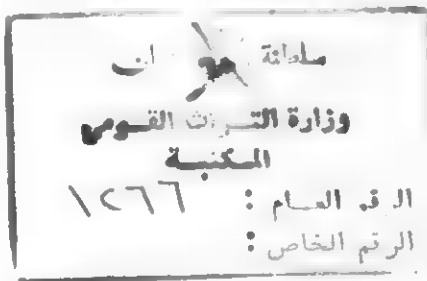 سلطنة عمان
وزارة التراث القومي
المكتبة
الرقم العام : ١٢٦٦
الرقم الخاص :